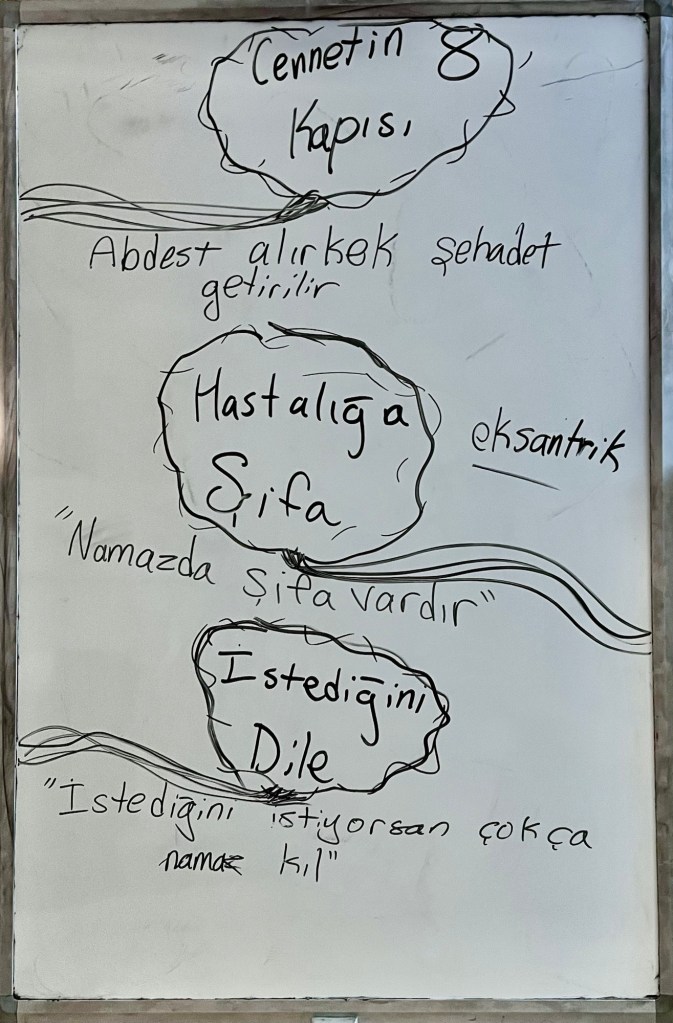 Cennetin 8
Kapısı
Abdest alırkek şehadet
getirilir
Hastalığa
Şifa
eksantrik
"Namazda şifa vardır"
İstediğini
Dile
"İstediğini istiyorsan çokça
namaz kıl"